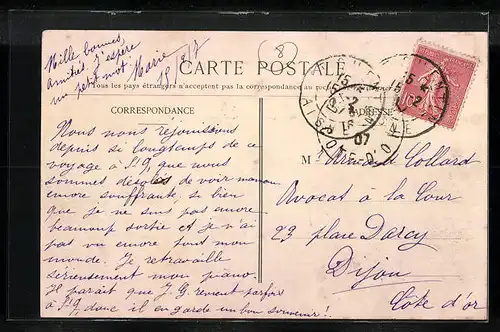 Mille bonnes
amitiés. J'espère
un petit mot. Marie
18/2/07
8
CARTE POSTALE
Tous les pays étrangers n'acceptent pas la correspondance au
CORRESPONDANCE
Nous nous rejouissions
depuis si longtemps de ce
voyage à S'9, que nous
sommes désolés de voir maman
encore souffrante, si bien
que je ne suis pas encore
beaucoup sortie et je n'ai
pas vu encore tout mon
monde. Je retravaille
sérieusement mon piano.
Il parait que J.G. revient parfois
à S'9, donc il en garde un bon souvenir!
ADRESSE
M Armand Collard
Avocat à la Cour
23 place Darcy
Dijon
Côte d'or
15
2
07
COTE D'O